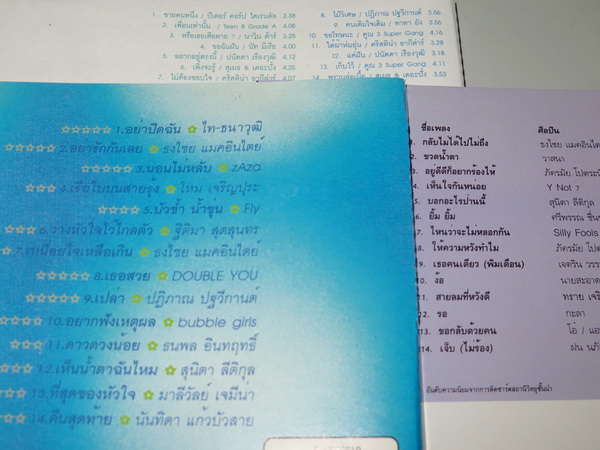 1. ชายคนหนึ่ง / ปีเตอร์ คอร์ป ไดเรนดัล 2.38
2. เพื่อนเท่านั้น / Teen 8 Grade A 4.08
3. หรือเธอเสียดาย ? / นาวิน ต้าร์ 3.25
4. ขอฉันฝัน / นัท มีเรีย 4.00
5. อยากอยู่ตรงนี้ / ปนัดดา เรืองวุฒิ 4.12
6. เพิ่งจะรู้ / สุเมธ & เดอะปั๋ง 4.25
7. ไม่ต้องขอบใจ / คริสติน่า อากีล่าร์ 4.07
8. ไม้วิเศษ / ปฏิภาณ ปฐวีกานต์ 3.56
9. คนเดิมใจเดิม / ทาทา ยัง 3.56
10. ขอโทษนะ / คูณ 3 Super Gang 4.16
11. ได้ม้าห่มอุ่น / คริสติน่า อากีล่าร์ 3.28
12. แค่ฝัน / ปนัดดา เรืองวุฒิ 4.21
13. เก็บไว้ / คูณ 3 Super Gang 4.11
14. / สุเมธ & เดอะปั๋ง 4.53
1.อย่าปิดฉัน ไท-ธนาวุฒิ
2.อยารักกันเลย ธงไชย แมคอินไตย์
3.นอนไม่หลับ zAzа
4.เรือใบบนสายรุ้ง ไหม เจริญปุระ
5.บัวช้ำ น้ำขุ่น Fly
6.วางหัวใจไว้ใกล้ตัว ฐิตินา สุดสุนทร
7.เหนื่อยใจเหลือเกิน ธงไชย แมคอินไตย์
8.เธอสวย DOUBLE YOU
9.เปล่า ปฏิภาณ ปฐวีกานต์
10.อยากฟังเหตุผล bubble girls
11.ดาวดวงน้อย ธนพล อินทฤทธิ์
12.เห็นน้ำตาฉันไหม สุนิตา ลีติกุล
13.ที่สุดของหัวใจ มาลีวัลย์ เจมีน่า
14.คืนสุดท้าย นันทิดา แก้วบัวสาย
ชื่อเพลง ศิลปิน
1. กลับไม่ได้ไปไม่ถึง ธงไชย แมคอินไต
2. ขวดน้ำตา วาสนา
3. อยู่ดีดีก็อยากร้องไห้ ภัครมัย โปตระนั
4. เห็นใจกันหน่อย Y Not 7
5. บอกอะไรปานนี้ สุนิตา ลีติกุล
6. ยิ้ม ยิ้ม ศรีพรรณ ชื่น
7. ไหนว่าจะไม่หลอกกัน Silly Fools
8. ให้ความหวังทำไม ภัครมัย โปต
9. เธอคนเดียว (พิมเดือน) เจตริน วรร
10. ง้อ นายสะอาด
11. สายลมที่หวังดี ทราย เจริ
12. รอ กะลา
13. ขอกลับด้วยคน โอ๋ / แอ
14. เจ็บ (ไม่ร้อง) ฝน นภั
อันดับความนิยมจากการติดชาร์ตสถานีวิทยุชั้นนำ